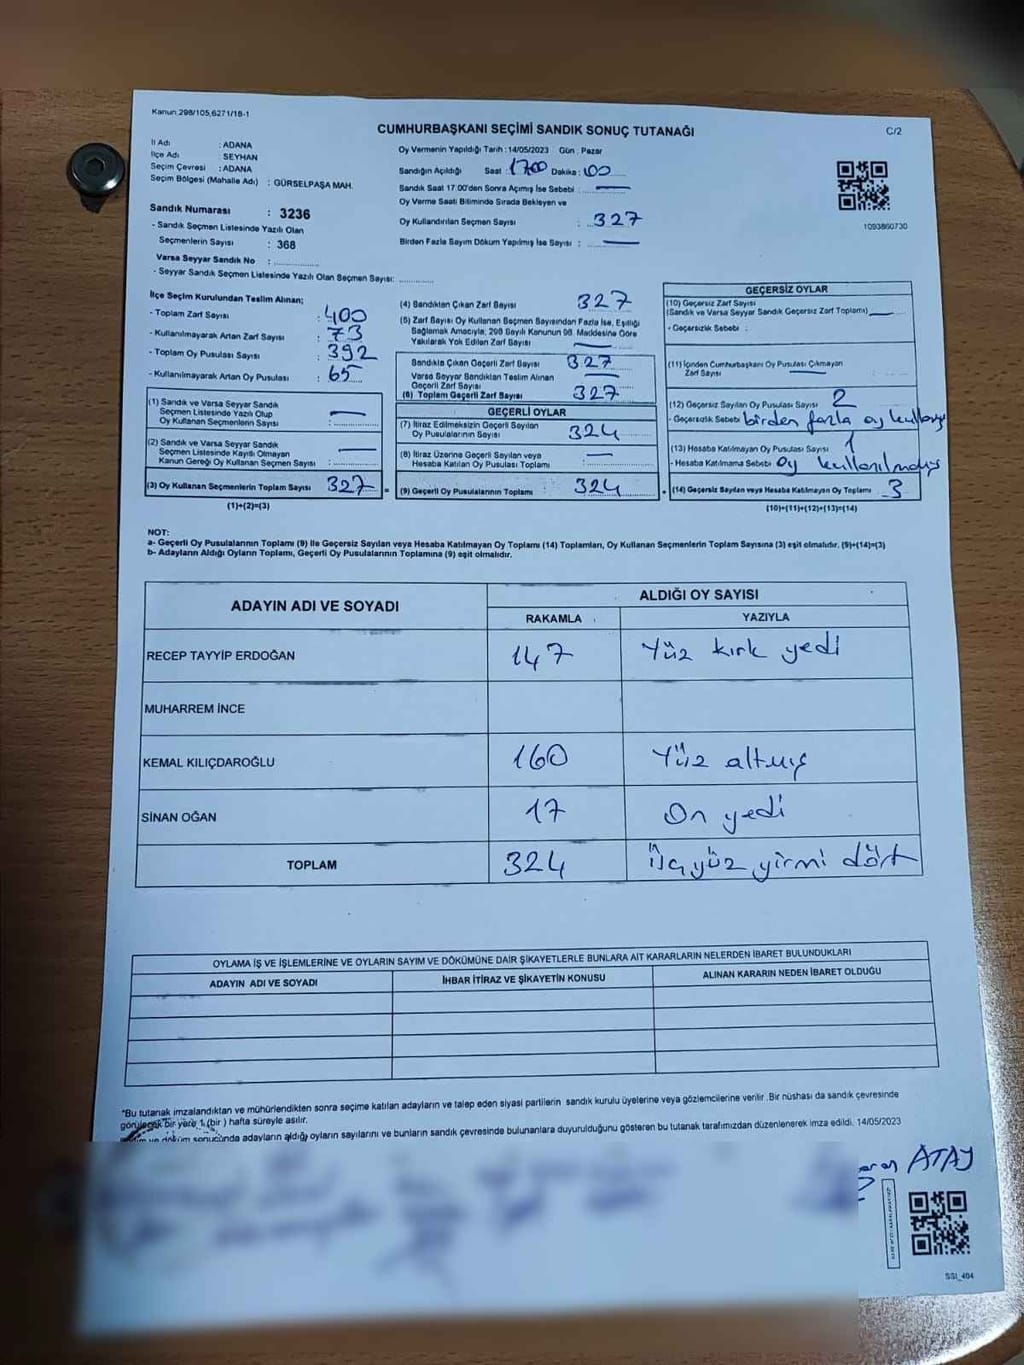 Kanun 298/105,6271/18-1
CUMHURBAŞKANI SEÇİMİ SANDIK SONUÇ TUTANAĞI
C/2
İl Adı : ADANA
İlçe Adı : SEYHAN
Seçim Çevresi : ADANA
Seçim Bölgesi (Mahalle Adı) : GÜRSELPAŞA MAH.
Oy Vermenin Yapıldığı Tarih : 14/05/2023 Gün : Pazar
Sandığın Açıldığı Saat : 1700 Dakika : 00
Sandık Saat 17.00'den Sonra Açılmış İse Sebebi :
Oy Verme Saati Bitiminde Sırada Bekleyen ve
Oy Kullandırılan Seçmen Sayısı : 327
Birden Fazla Sayım Döküm Yapılmış İse Sayısı :
1093860730
Sandık Numarası : 3236
- Sandık Seçmen Listesinde Yazılı Olan
Seçmenlerin Sayısı : 368
Varsa Seyyar Sandık No :
- Seyyar Sandık Seçmen Listesinde Yazılı Olan Seçmen Sayısı:
İlçe Seçim Kurulundan Teslim Alınan;
- Toplam Zarf Sayısı : 400
- Kullanılmayarak Artan Zarf Sayısı : 73
- Toplam Oy Pusulası Sayısı : 392
- Kullanılmayarak Artan Oy Pusulası : 65
(1) Sandık ve Varsa Seyyar Sandık
Seçmen Listesinde Yazılı Olup
Oy Kullanan Seçmenlerin Sayısı :
(2) Sandık ve Varsa Seyyar Sandık
Seçmen Listesinde Kayıtlı Olmayan
Kanun Gereği Oy Kullanan Seçmen Sayısı :
(3) Oy Kullanan Seçmenlerin Toplam Sayısı 327
(1)+(2)=(3)
(4) Sandıktan Çıkan Zarf Sayısı 327
(5) Zarf Sayısı Oy Kullanan Seçmen Sayısından Fazla İse, Eşitliği
Sağlamak Amacıyla, 298 Sayılı Kanunun 98. Maddesine Göre
Yakılarak Yok Edilen Zarf Sayısı :
Sandıkta Çıkan Geçerli Zarf Sayısı 327
Varsa Seyyar Sandıktan Teslim Alınan
Geçerli Zarf Sayısı
(6) Toplam Geçerli Zarf Sayısı 327
GEÇERLİ OYLAR
(7) İtiraz Edilmeksizin Geçerli Sayılan
Oy Pusulalarının Sayısı 324
(8) İtiraz Üzerine Geçerli Sayılan veya
Hesaba Katılan Oy Pusulası Toplamı
(9) Geçerli Oy Pusulalarının Toplamı 324
GEÇERSİZ OYLAR
(10) Geçersiz Zarf Sayısı
(Sandık ve Varsa Seyyar Sandık Geçersiz Zarf Toplamı)
- Geçersizlik Sebebi :
(11) İçinden Cumhurbaşkanı Oy Pusulası Çıkmayan
Zarf Sayısı
(12) Geçersiz Sayılan Oy Pusulası Sayısı 2
- Geçersizlik Sebebi birden fazla oy
(13) Hesaba Katılmayan Oy Pusulası Sayısı 1
- Hesaba Katılmama Sebebi oy kullanılmamış
(14) Geçersiz Sayılan veya Hesaba Katılmayan Oy Toplamı 3
(10)+(11)+(12)+(13)=(14)
NOT:
a- Geçerli Oy Pusulalarının Toplamı (9) İle Geçersiz Sayılan veya Hesaba Katılmayan Oy Toplamı (14) Toplamları, Oy Kullanan Seçmenlerin Toplam Sayısına (3) eşit olmalıdır. (9)+(14)=(3)
b- Adayların Aldığı Oyların Toplamı, Geçerli Oy Pusulalarının Toplamına (9) eşit olmalıdır.
ADAYIN ADI VE SOYADI
ALDIĞI OY SAYISI
RAKAMLA YAZIYLA
RECEP TAYYİP ERDOĞAN 147 Yüz kırk yedi
MUHARREM İNCE
KEMAL KILIÇDAROĞLU 160 Yüz altmış
SİNAN OĞAN 17 On yedi
TOPLAM 324 üçyüz yirmi dört
OYLAMA İŞ VE İŞLEMLERİNE VE OYLARIN SAYIM VE DÖKÜMÜNE DAİR ŞİKAYETLERLE BUNLARA AİT KARARLARIN NELERDEN İBARET BULUNDUKLARI
ADAYIN ADI VE SOYADI İHBAR İTİRAZ VE ŞİKAYETİN KONUSU ALINAN KARARIN NEDEN İBARET OLDUĞU
"Bu tutanak imzalandıktan ve mühürlendikten sonra seçime katılan adayların ve talep eden siyasi partilerin sandık kurulu üyelerine veya gözlemcilerine verilir. Bir nüshası da sandık çevresinde
görülecek bir yere 1 (bir) hafta süreyle asılır.
ve döküm sonucunda adayların aldığı oyların sayılarını ve bunların sandık çevresinde bulunanlara duyurulduğunu gösteren bu tutanak tarafımızdan düzenlenerek imza edildi. 14/05/2023
ATAY
SSI_404